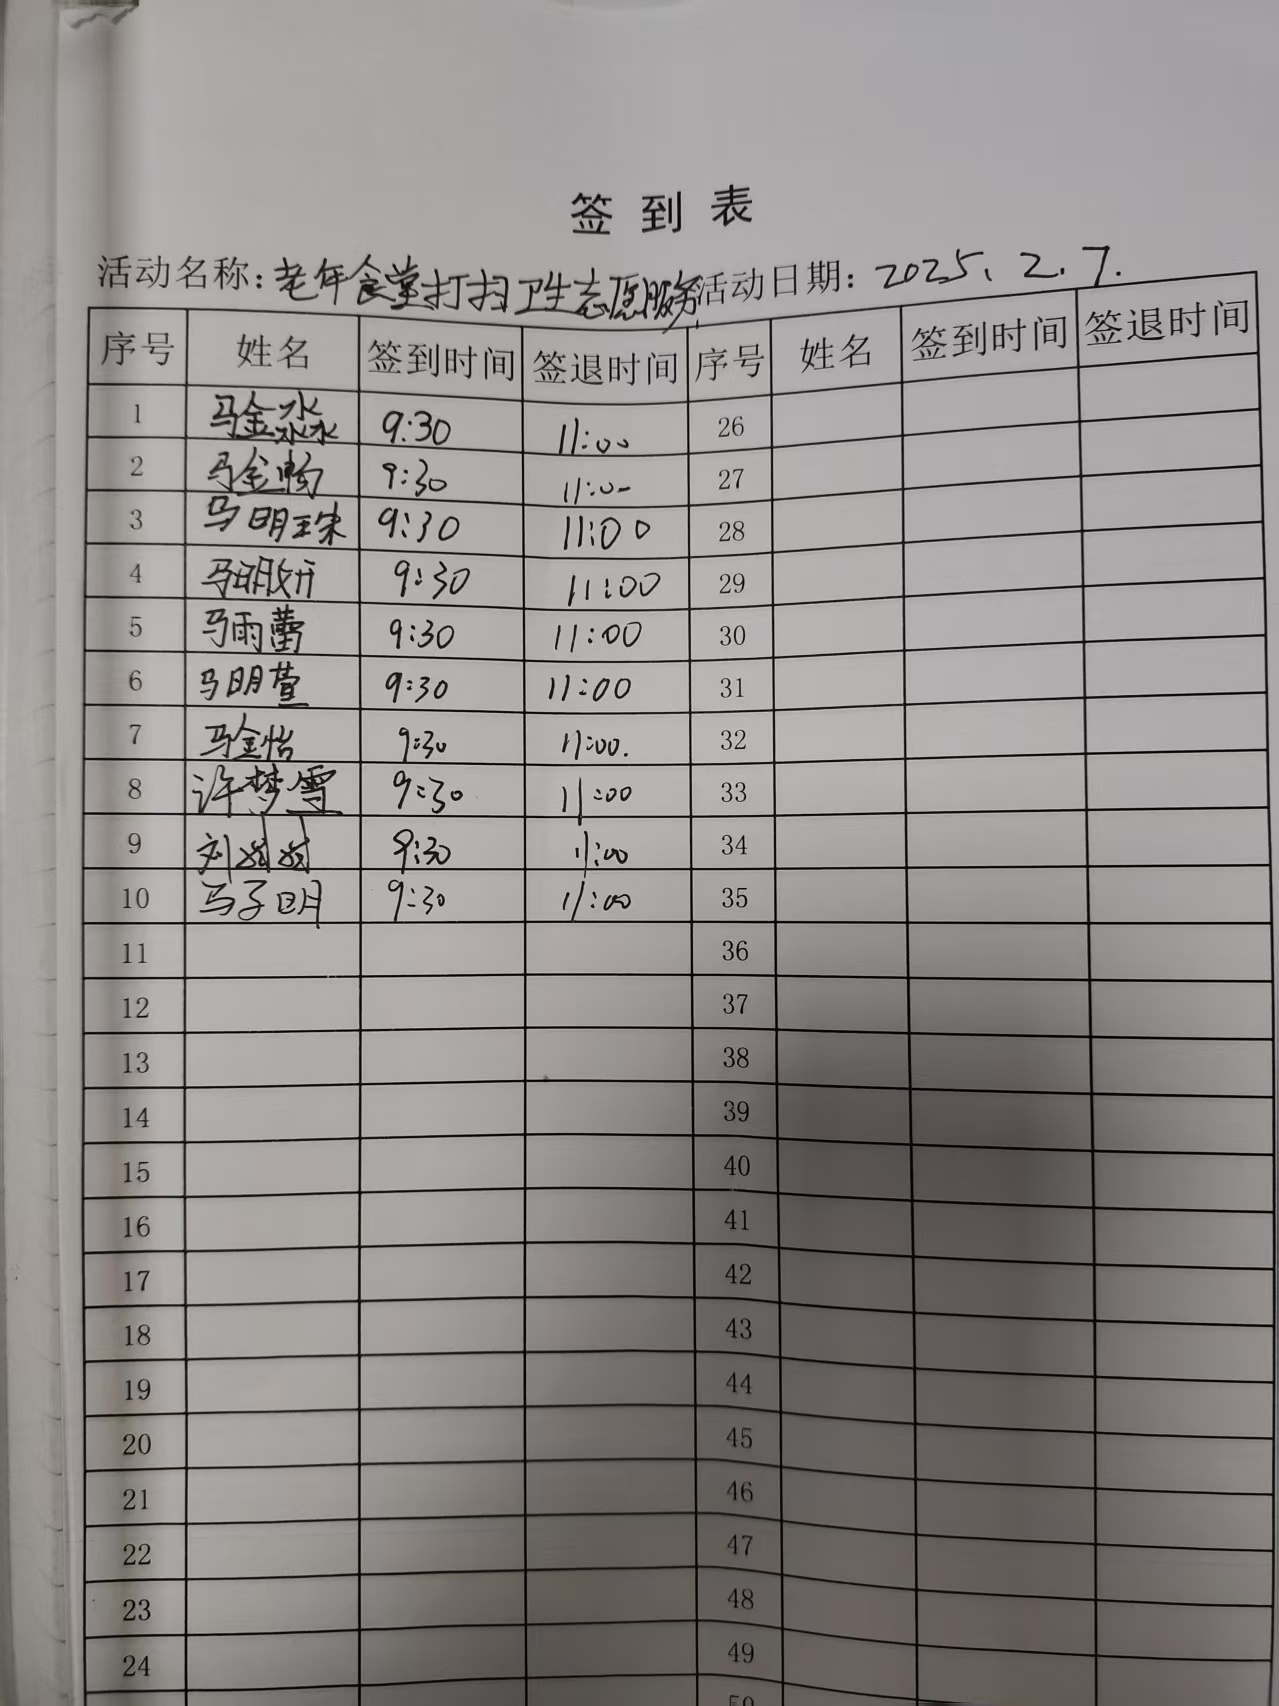 签到表
活动名称：老年食堂打扫卫生志愿服务 活动日期：2025.2.7.
序号 姓名 签到时间 签退时间 序号 姓名 签到时间 签退时间
1 马金淼 9:30 11:00 26
2 马金畅 9:30 11:00 27
3 马明珠 9:30 11:00 28
4 马明妍 9:30 11:00 29
5 马雨蕾 9:30 11:00 30
6 马明萱 9:30 11:00 31
7 马金怡 9:30 11:00. 32
8 许梦雪 9:30 11:00 33
9 刘 9:30 11:00 34
10 马子明 9:30 11:00 35
11 36
12 37
13 38
14 39
15 40
16 41
17 42
18 43
19 44
20 45
21 46
22 47
23 48
24 49
50